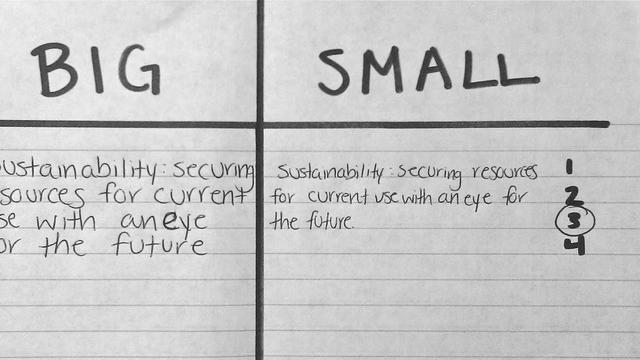 BIG
SMALL
ustainability: securing
sources for current
se with an eye
or the future
Sustainability: securing resources
for current use with an eye for
the future.
1
2
3
4